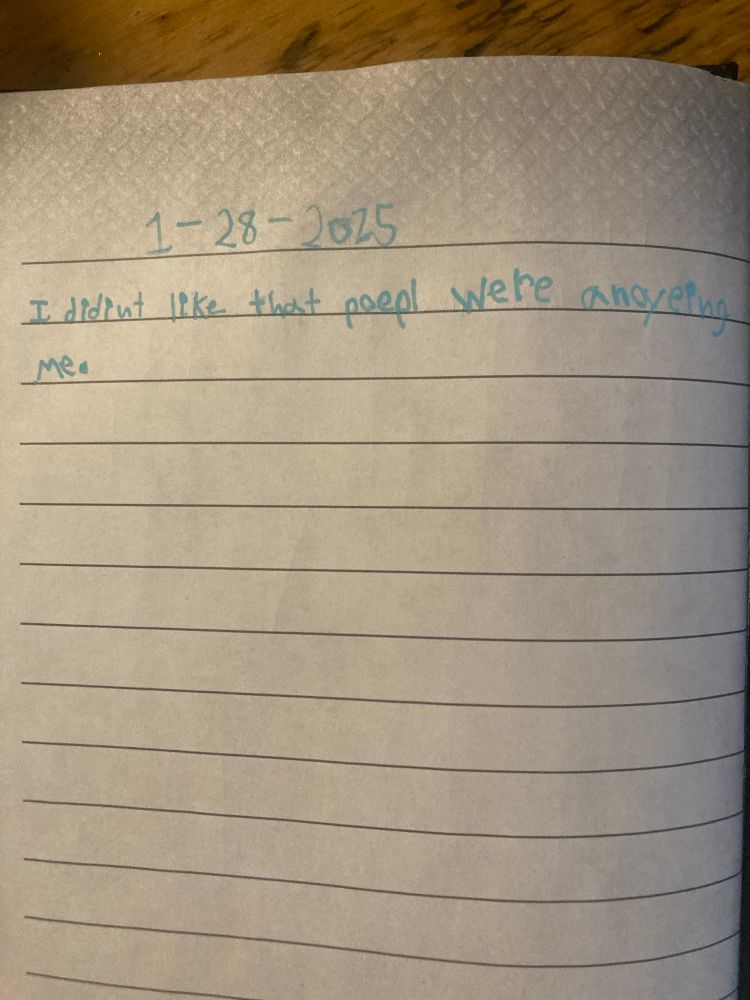 1-28-2025
I didint like that poepl were anoyeing
me.